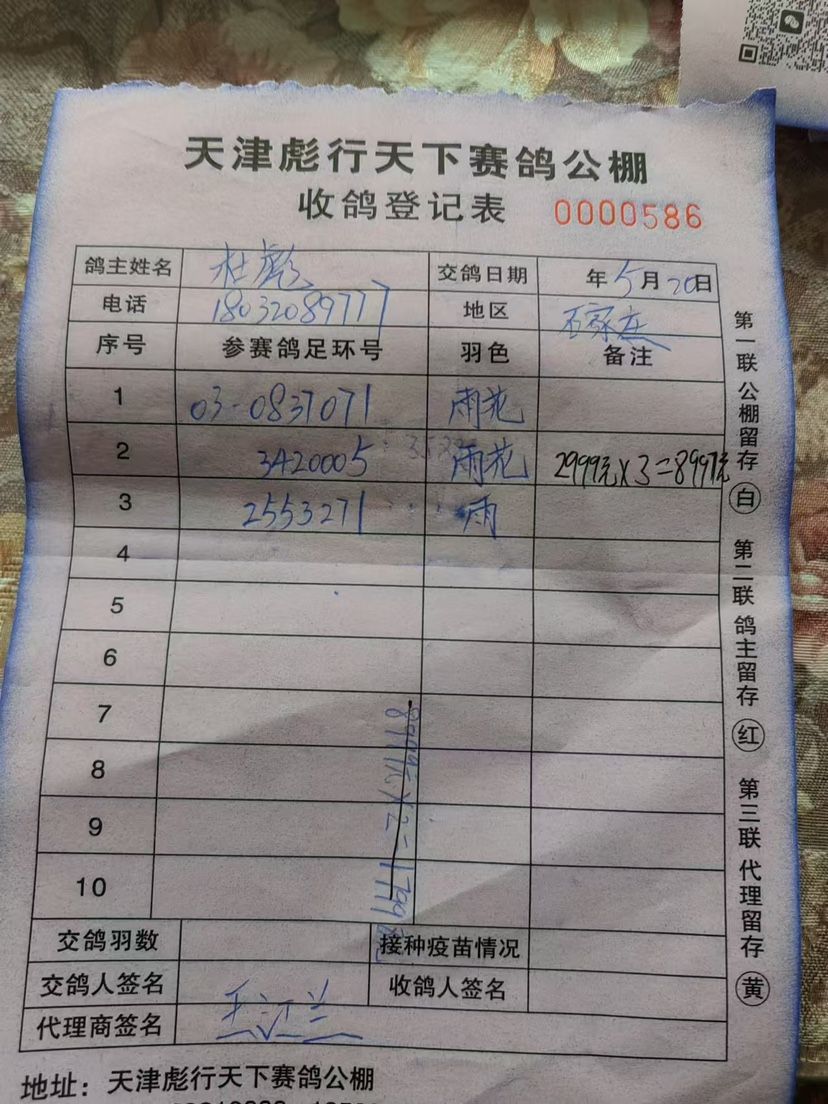 天津彪行天下赛鸽公棚
收鸽登记表 0000586
鸽主姓名 杜彪 交鸽日期 年5月20日
电话 18032089777 地区 石家庄
序号 参赛鸽足环号 羽色 备注
1 03-0837071 雨花
2 3420005 雨花 2999元×3=8997元
3 2553271 雨
4
5
6
7
8
9
10
交鸽羽数 接种疫苗情况
交鸽人签名 收鸽人签名
代理商签名 王江兰
地址：天津彪行天下赛鸽公棚
第一联 公棚留存 白 第二联 鸽主留存 红 第三联 代理留存 黄